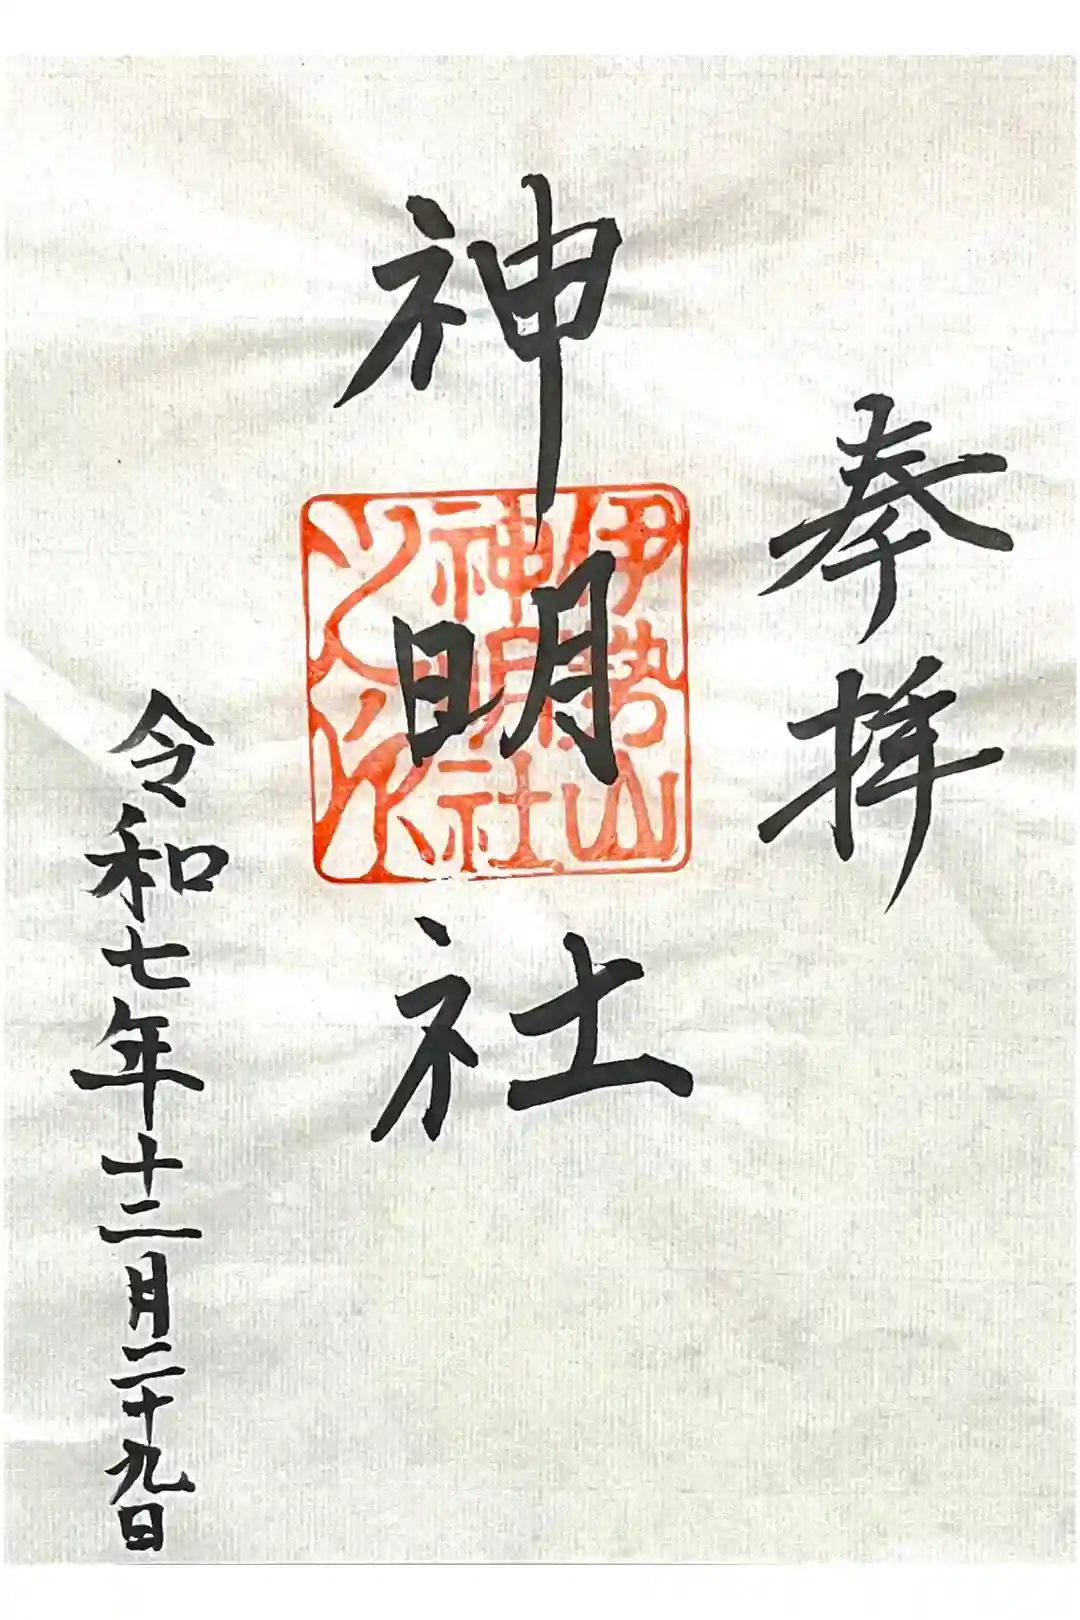 奉拝
神明社
伊勢山
神明社
之印
令和七年十二月二十九日